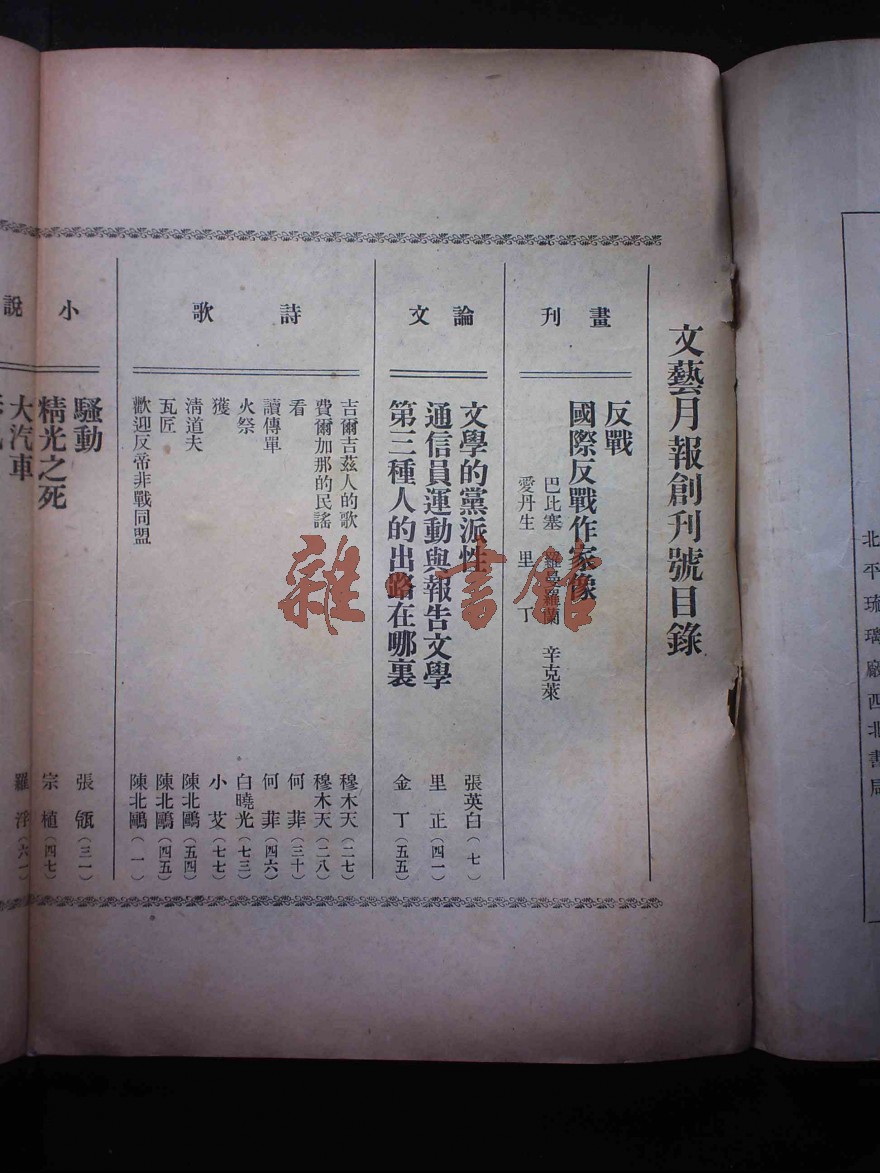 文藝月報創刊號目錄
畫刊
反戰
國際反戰作家像
巴比塞 羅曼羅蘭 辛克萊
愛丹生 里丁
論文
文學的黨派性 張英白(七)
通信員運動與報告文學 里正(四一)
第三種人的出路在哪裏 金丁(五五)
詩歌
吉爾吉茲人的歌 穆木天(二七)
費爾加那的民謠 穆木天(二八)
看 何菲(三十)
讀傳單 何菲(四六)
火祭 白曉光(七三)
獲 小艾(七七)
清道夫 陳北鷗(五四)
瓦匠 陳北鷗(四五)
歡迎反帝非戰同盟 陳北鷗(一)
小說
騷動 張瓴(三一)
精光之死 宗植(四七)
大汽車 羅浮(六一)
北平琉璃廠西北書局
雜書館